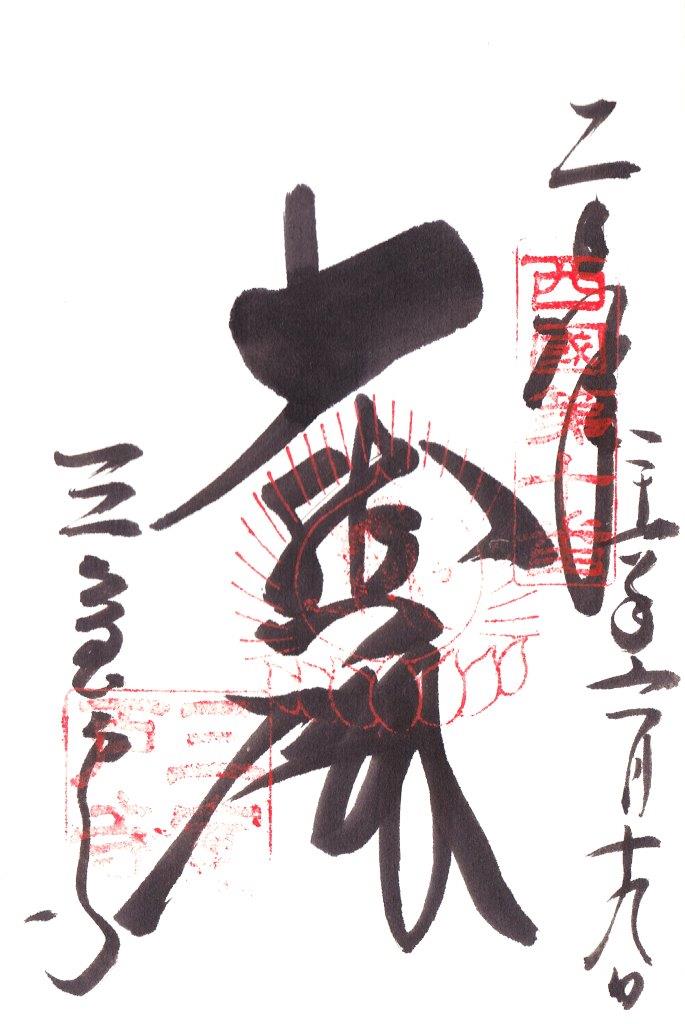 奉拝
西國第十番
二十五年六月十九日
大悲殿
三室戸寺